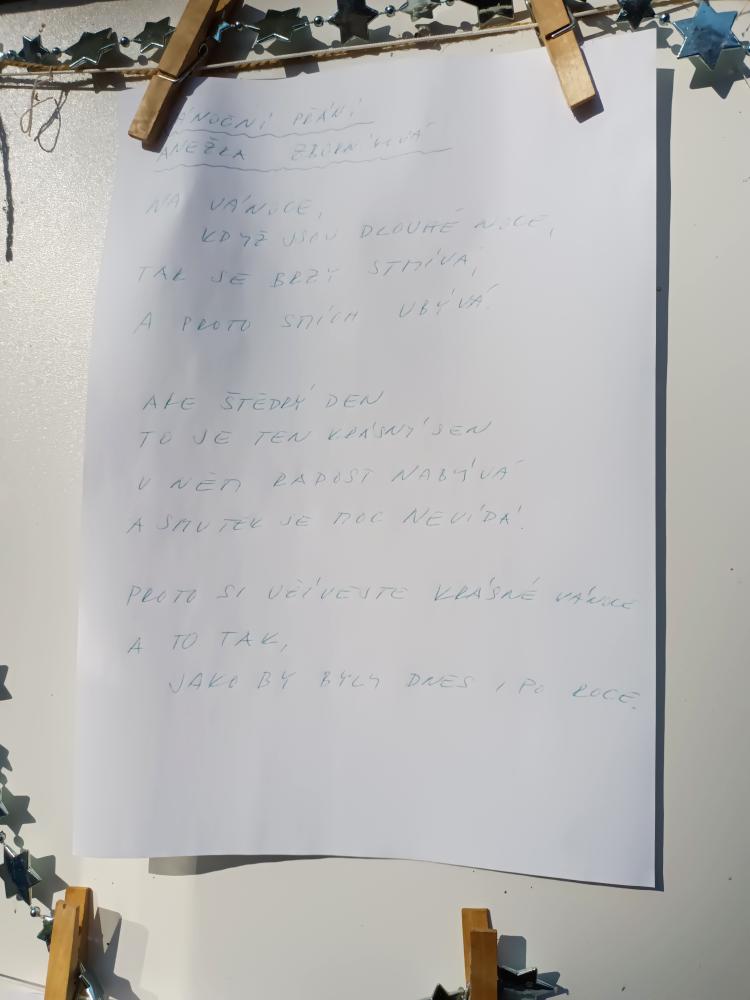 ÁNOČNÍ PŘÁNÍ
ANEŽKA
NA VÁNOCE,
KDYŽ JSOU DLOUHÉ NOCE,
TAK SE BRZY STMÍVÁ,
A PROTO SMÍCH UBÝVÁ.
ALE ŠTĚDRÝ DEN
TO JE TEN KRÁSNÝ SEN
V NĚM RADOST NABÝVÁ
A SMUTEK SE MOC NEVÍDÁ.
PROTO SI UŽÍVEJTE KRÁSNÉ VÁNOCE
A TO TAK,
JAKO BY BYLY DNES I PO ROCE.